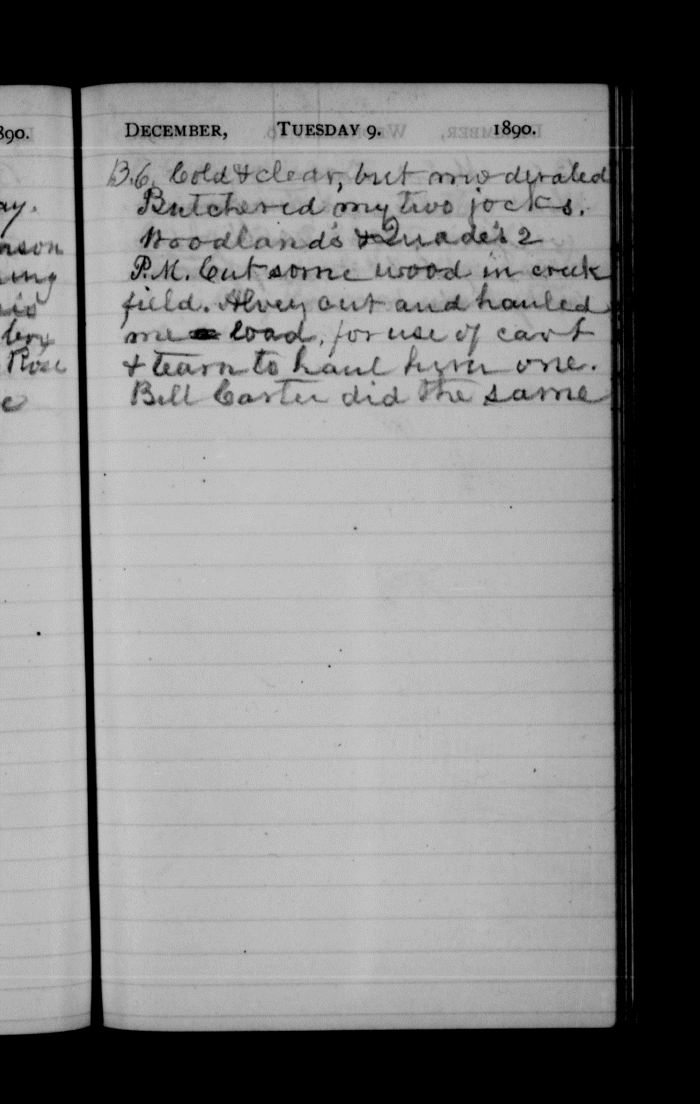 890.
ay.
nson
ning
his
box
Rose
e
DECEMBER, TUESDAY 9. 1890.
B.6. Cold & clear, but moderated
Butchered my two jocks.
Woodland's & Quade's 2
P.M. Cut some wood in creek
field. Alvey out and hauled
me load, for use of cart
& team to haul hym one.
Bill Carter did the same